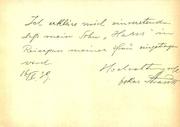 Ich erkläre mich einverstanden
daß mein Sohn „Hans" in
Reisepass meiner Frau eingetragen
wird.
Hochachtungsvoll
Oskar